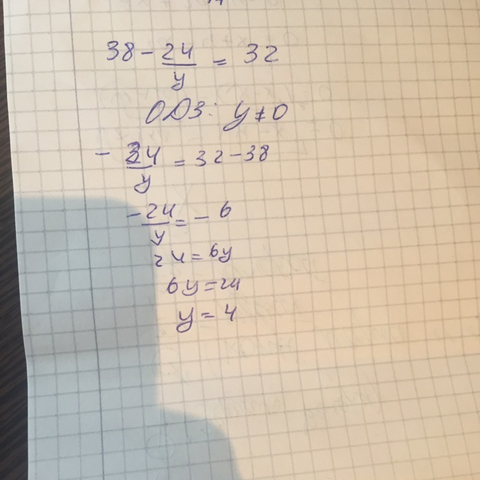 38 - 24/y = 32
ОДЗ: y ≠ 0
- 24/y = 32 - 38
- 24/y = - 6
24 = 6y
6y = 24
y = 4